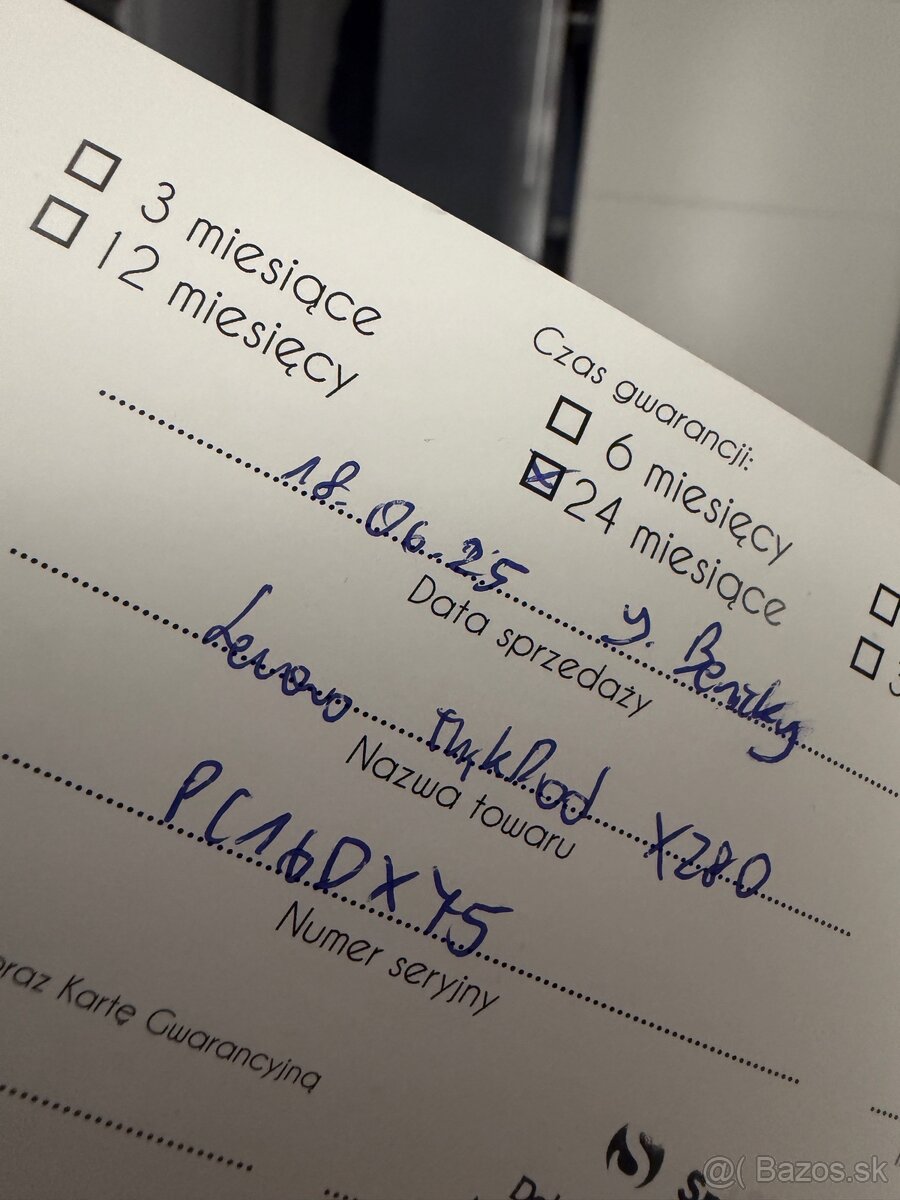 Czas gwarancji:
3 miesiące
6 miesięcy
12 miesięcy
24 miesiące
18.06.25 y. Beničky
Data sprzedaży
Lenovo ThinkPad X280
Nazwa towaru
PC16DXY5
Numer seryjny
oraz Kartę Gwarancyjną
@( Bazos.sk